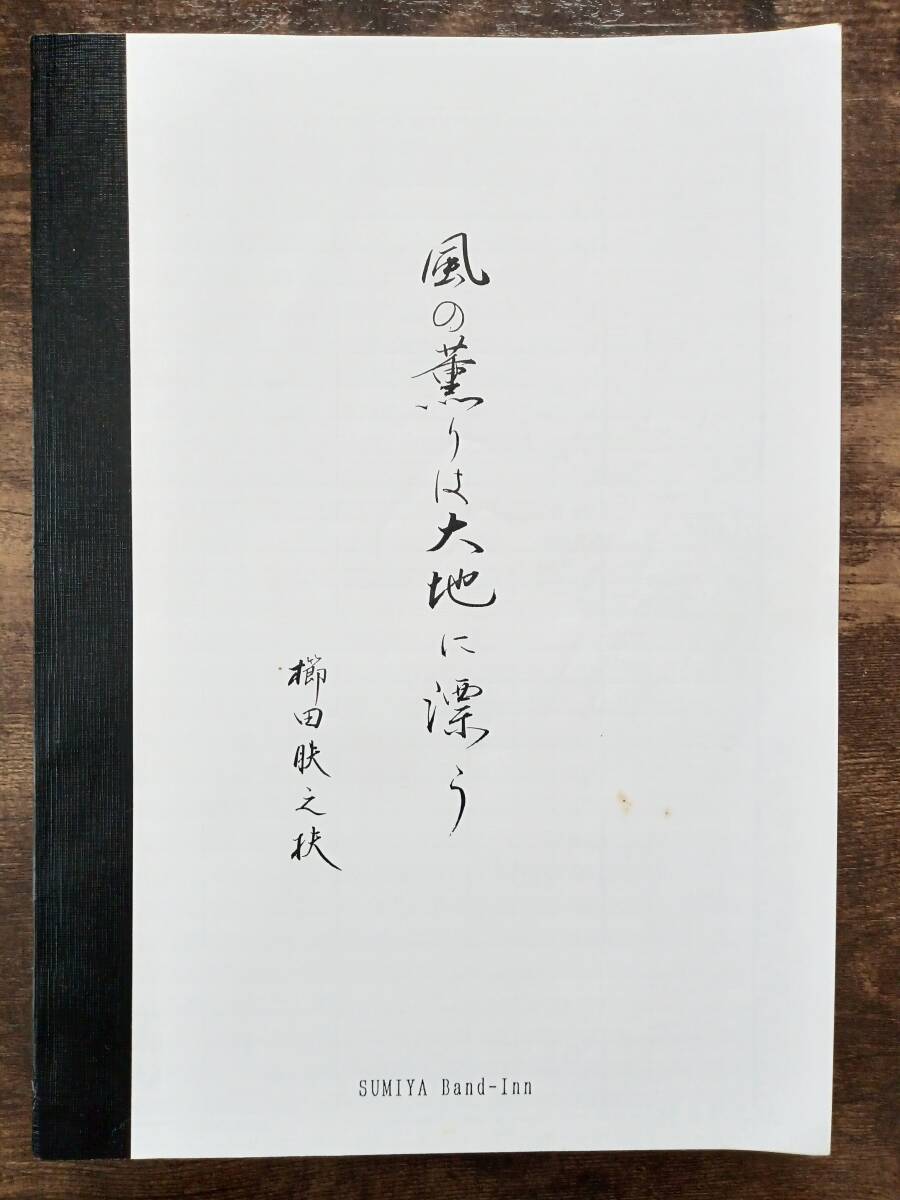 風の薫りは大地に漂う
櫛田胅之扶
SUMIYA Band-Inn